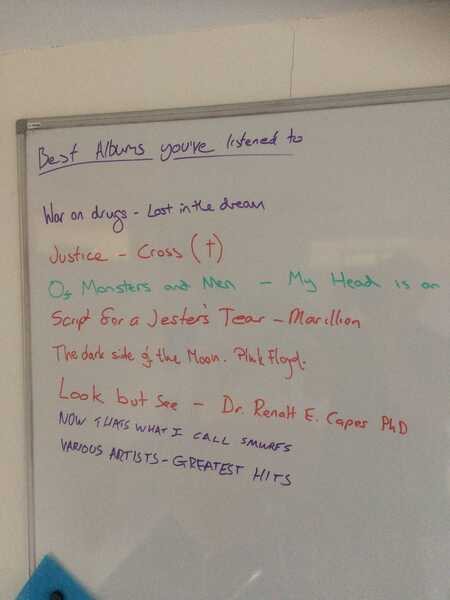 Best Albums you've listened to
War on drugs - Lost in the dream
Justice - Cross (†)
Of Monsters and Men - My Head is an
Script for a Jester's Tear - Marillion
The dark side of the Moon. Pink Floyd.
Look but See - Dr. Renolt E. Capes PhD
NOW THATS WHAT I CALL SMURFS
VARIOUS ARTISTS - GREATEST HITS